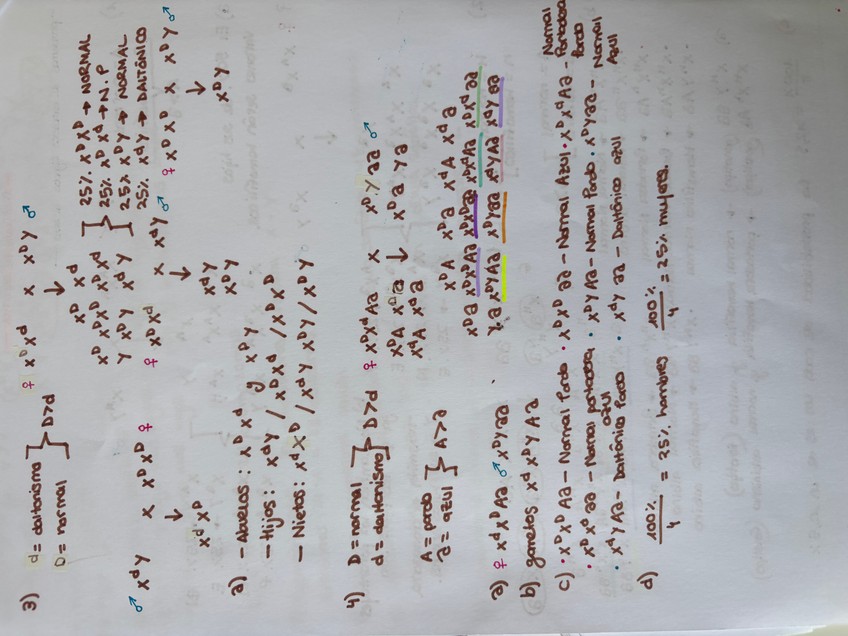 3) d = daltonismo
D = normal } D>d
♀ XᴰXᵈ x XᴰY ♂
↓
Xᴰ Xᵈ
Xᴰ XᴰXᴰ XᴰXᵈ
Y XᴰY XᵈY
25% XᴰXᴰ → NORMAL
25% XᴰXᵈ → N.P
25% XᴰY → NORMAL
25% XᵈY → DALTÓNICO
♂ XᵈY x XᴰXᴰ ♀
↓
XᵈXᴰ
♀ XᴰXᵈ x XᵈY ♂
↓
XᵈY
XᴰY
♀ XᴰXᴰ x XᴰY ♂
↓
XᴰY
a) - Abuelos: XᴰXᵈ y XᴰY
- Hijos: XᵈY / XᴰXᵈ / XᴰXᴰ
- Nietos: XᵈXᴰ / XᵈY XᴰY / XᴰY
4) D = normal
d = daltonismo } D>d
A = pardo
a = azul } A>a
♀ XᴰXᵈAa x XᴰYaa ♂
XᴰA Xᴰa ↓ Xᴰa Ya
XᵈA Xᵈa
XᴰA Xᴰa XᵈA Xᵈa
Xᴰa XᴰXᴰAa XᴰXᴰaa XᴰXᵈAa XᴰXᵈaa
Ya XᴰYAa XᴰYaa XᵈYAa XᵈYaa
a) ♀ XᵈXᴰAa ♂ XᴰYaa
b) gametos Xᵈ Xᴰ Y A a
c) • XᴰXᴰAa - Normal Pardo • XᴰXᴰaa - Normal Azul • XᴰXᵈAa - Normal Portadora Pardo
• XᴰXᵈaa - Normal portadora azul • XᴰYAa - Normal Pardo • XᴰYaa - Normal Azul
• XᵈYAa - Daltónico Pardo • XᵈYaa - Daltónico azul
d) 100%/4 = 25% hombres 100%/4 = 25% mujeres